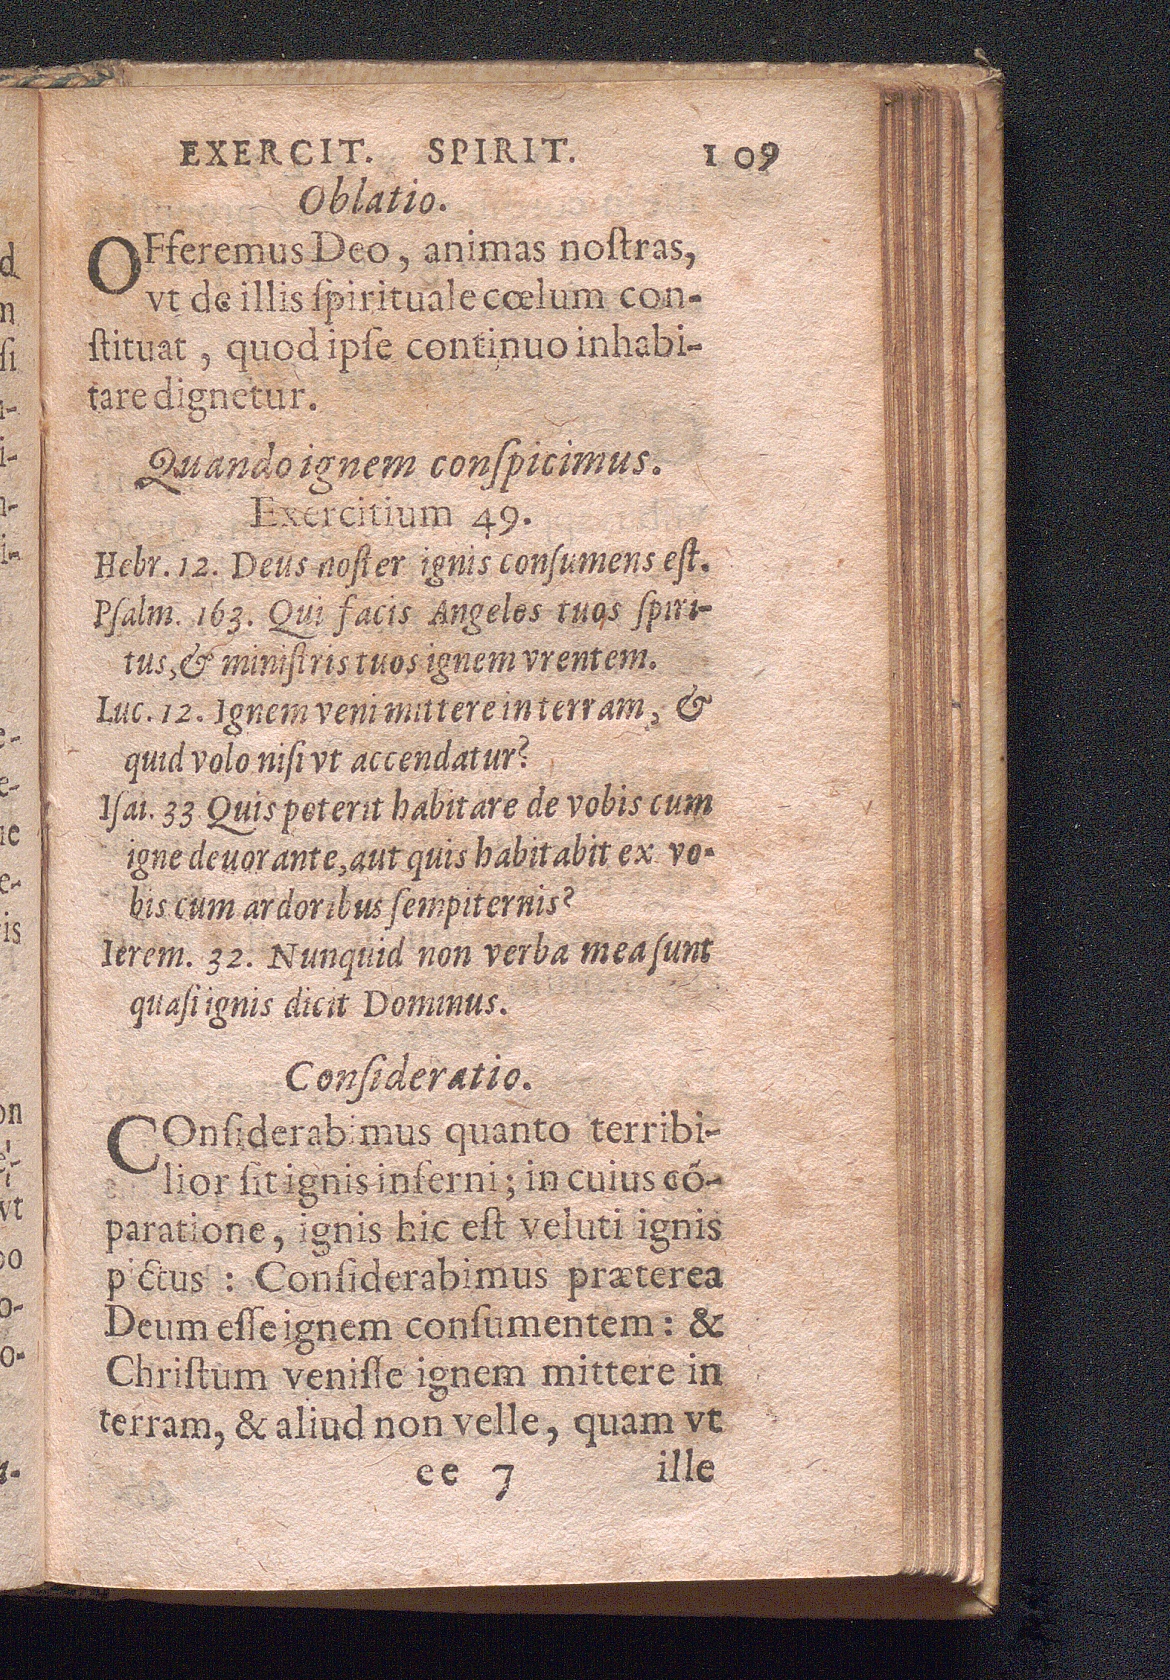 EXERCIT. SPIRIT. 109
Oblatio.
OFferemus Deo, animas noſtras,
vt de illis ſpirituale cœlum con-
ſtituat, quod ipſe continuo inhabi-
tare dignetur.
Quando ignem conſpicimus.
Exercitium 49.
Hebr. 12. Deus noſter ignis conſumens eſt.
Pſalm. 163. Qui facis Angelos tuos ſpiri-
tus, & miniſtris tuos ignem vrentem.
Luc. 12. Ignem veni mittere in terram, &
quid volo niſi vt accendatur?
Iſai. 33 Quis poterit habitare de vobis cum
igne deuorante, aut quis habitabit ex vo-
bis cum ardoribus ſempiternis?
Ierem. 32. Nunquid non verba mea ſunt
quaſi ignis dicit Dominus.
Conſideratio.
COnſiderabimus quanto terribi-
lior ſit ignis inferni; in cuius cõ-
paratione, ignis hic eſt veluti ignis
pictus : Conſiderabimus præterea
Deum eſſe ignem conſumentem: &
Chriſtum veniſſe ignem mittere in
terram, & aliud non velle, quam vt
ee 7 ille